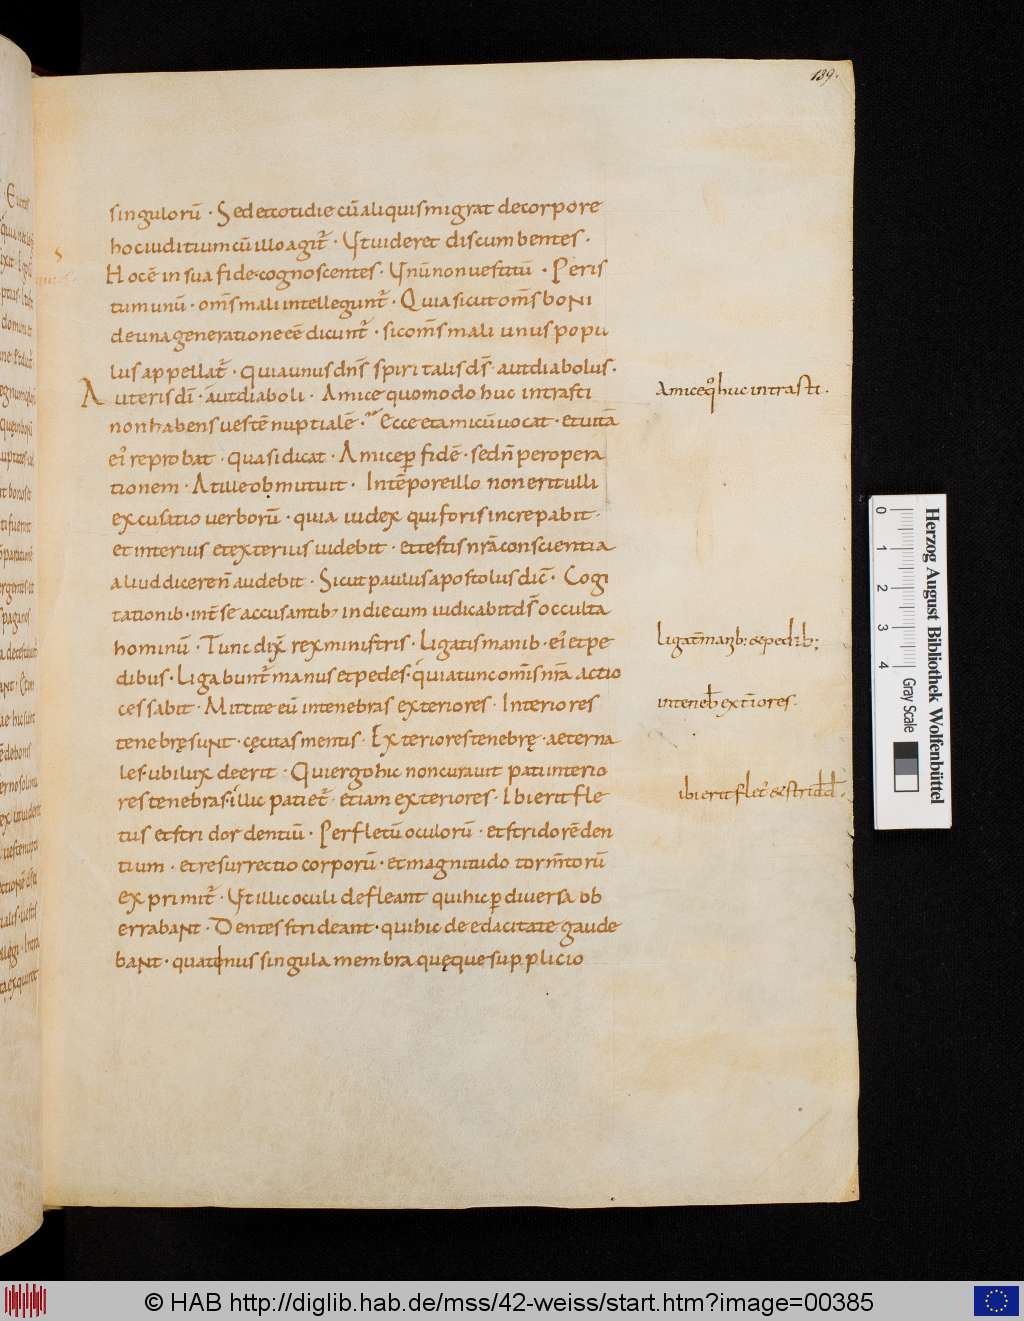 139.
singulorū · Sed et cotidie cū aliquis migrat de corpore
hoc iuditium cū illo agit᷑ · Ut uideret discumbentes ·
Hoc ē in sua fide cognoscentes · Unū non uestitū · Peris
tum unū · om̄s mali intellegunt᷑ · Quia sicut om̄s boni
de una generatione eē dicunt᷑ · sic om̄s mali unus popu
lus appellat᷑ · quia unus dn̄s spiritalis ds̄ · aut diabolus ·
Aut eris dī · aut diaboli · Amice quomodo huc intrasti
non habens uestē nuptialē · Ecce et amicū uocat · et uitā
ei᷒ reprobat · quasi dicat · Amice ꝑ fidē · sed n̄ per opera
tionem · At ille obmutuit · In tēpore illo non erit ulli
excusitio uerborū · quia iudex qui foris increpabit ·
et interius et exterius uidebit · et testis nr̄a conscientia
aliud dicere n̄ audebit · Sicut paulus apostolus dic̄ · Cogi
tationib · int̄ se accusantib; in die cum iudicabit ds̄ occulta
hominū · Tunc dix̄ rex ministris · Ligatis manib · ei᷒ et pe
dibus · Ligabunt᷑ manus et pedes · quia tunc omīs nr̄a actio
cessabit · Mittite eū in tenebras exteriores · Interiores
tenebrę sunt · cęcitas mentis · Exteriores tenebrę · aeterna
les ubi lux deerit · Qui ergo hic non curauit pati interio
res tenebras · illic patiet᷑ · etiam exteriores · Ibi erit fle
tus et stridor dentiū · Per fletū oculorū · et stridorē den
tium · et resurrectio corporū · et magnitudo torm̄torū
exprimit᷑ · Ut illic oculi defleant qui hic ꝑ diuersa ob
errabant · Dentes strideant · qui hic de edacitate gaude
bant · quatenus singula membra quęque supplicio
Amice qͦ huc intrasti ·
Ligatis manib: & pedib:
in teneb̄ ext̄iores ·
ibi erit flet᷒ & strid d ·
Herzog August Bibliothek Wolfenbüttel
0 1 2 3 4
Gray Scale
© HAB http://diglib.hab.de/mss/42-weiss/start.htm?image=00385